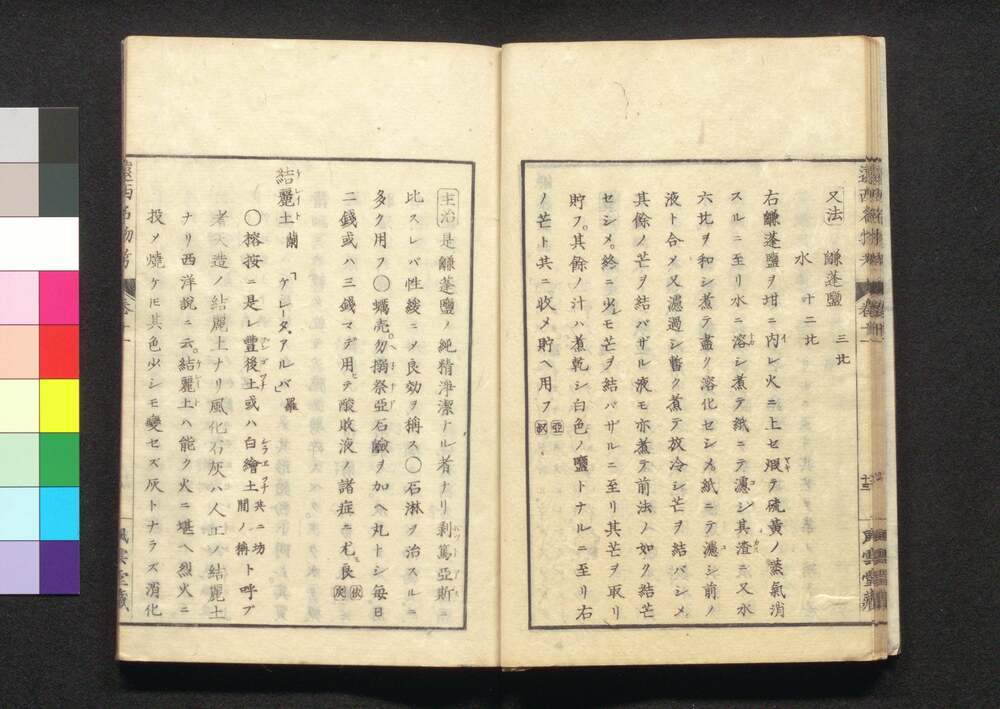 又法 鹻蓬鹽 三比
水 十二比
右鹻蓬鹽ヲ坩ニ内レ火ニ上セ煆テ硫黄ノ蒸氣消
スルニ至リ水ニ溶シ煮テ紙ニテ濾シ其渣ニ又水
六比ヲ和シ煮テ盡ク溶化セシメ紙ニテ濾シ前ノ
液ト合メ又濾過シ暫ク煮テ放冷シ芒ヲ結バシメ
其餘ノ芒ヲ結バザル液モ亦煮テ前法ノ如ク結芒
セシメ終ニ少モ芒ヲ結バザルニ至リ其芒ヲ取リ
貯フ其餘ノ汁ハ煮乾シ白色ノ鹽トナルニ至リ右
ノ芒ト共ニ收メ貯ヘ用フ
主治 是鹻蓬鹽ノ純精淨潔ナル者ナリ剥篤亞斯ニ
比スレバ性緩ニメ良効ヲ稱ス〇石淋ヲ治スルニ
多ク用フ〇蠣壳勿搦祭亞石鹼ヲ加ヘ丸トシ毎日
二錢或ハ三錢マデ用ヒテ酸敗液ノ諸症ニ尤良
結麗土 蘭 「ケレータ、アルバ 羅
〇榕按ニ是レ豊後土或ハ白繪土共ニ坊間ノ稱ト呼ブ
者天造ノ結麗土ナリ風化石灰ハ人工ノ結麗土
ナリ西洋説ニ云結麗土ハ能ク火ニ堪ヘ烈火ニ
投メ燒ケ𪜈其色少シモ變セズ灰トナラズ消化
風雲堂藏